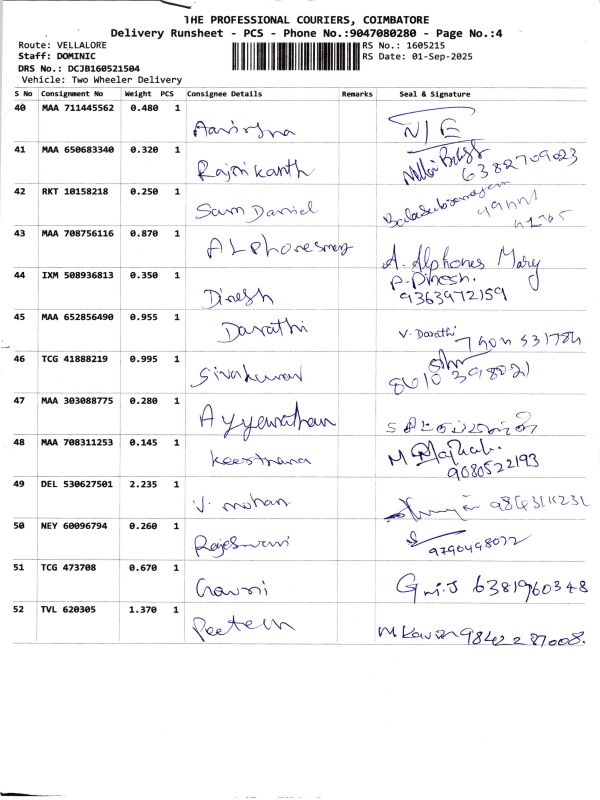 THE PROFESSIONAL COURIERS, COIMBATORE
Delivery Runsheet - PCS - Phone No.:9047080280 - Page No.:4
Route: VELLALORE RS No.: 1605215
Staff: DOMINIC RS Date: 01-Sep-2025
DRS No.: DCJB160521504
Vehicle: Two Wheeler Delivery
S No Consignment No Weight PCS Consignee Details Remarks Seal & Signature
40 MAA 711445562 0.480 1
N/E
41 MAA 650683340 0.320 1
Rajnikanth 6382709023
42 RKT 10158218 0.250 1
Sam Daniel Balasubramaniam
43 MAA 708756116 0.870 1
A. Alphones Mary
44 IXM 508936813 0.350 1
Dinesh P. Dinesh.
9363972159
45 MAA 652856490 0.955 1
Darathi V. Darathi
46 TCG 41888219 0.995 1
Sivakumar 8610398021
47 MAA 303088775 0.280 1
48 MAA 708311253 0.145 1
Keerthana M
9080522193
49 DEL 530627501 2.235 1
V. mohan
50 NEY 60096794 0.260 1
Rajeswari 9790498022
51 TCG 473708 0.670 1
Gowri 6381960348
52 TVL 620305 1.370 1
9842287008.